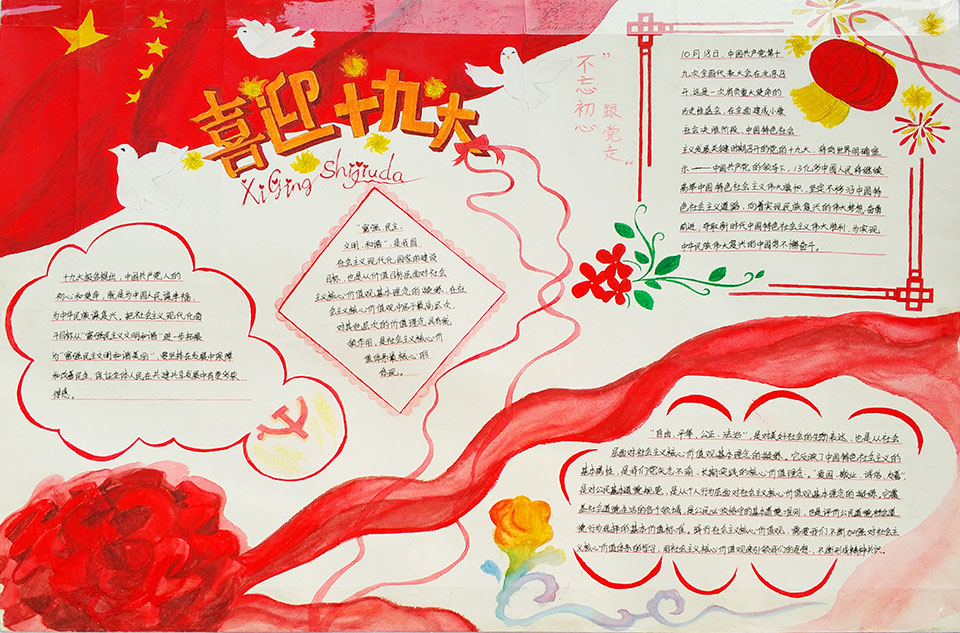 喜迎十九大
XiQing Shijiuda
“不忘初心
跟党走”
10月18日，中国共产党第十
九次全国代表大会在北京召
开，这是一次肩负重大使命的
历史性盛会，在全面建成小康
社会决胜阶段、中国特色社会
主义发展关键时期召开的党的十九大，将向世界明确宣
示——中国共产党的领导下，13亿多中国人民将继续
高举中国特色社会主义伟大旗帜，坚定不移沿中国特
色社会主义道路，向着实现民族复兴的伟大梦想奋勇
前进，夺取新时代中国特色社会主义伟大胜利，为实现
中华民族伟大复兴的中国梦不懈奋斗。
“富强、民主、
文明、和谐”，是我国
社会主义现代化国家的建设
目标，也是从价值目标层面对社会
主义核心价值观基本理念的凝练，在社
会主义核心价值观中居于最高层次，
对其他层次的价值理念具有统
领作用，是社会主义核心价
值体系最核心的
体现。
十九大报告提出，中国共产党人的
初心和使命，就是为中国人民谋幸福，
为中华民族谋复兴，把社会主义现代化奋
斗目标从“富强民主文明和谐”进一步拓展
为“富强民主文明和谐美丽”，要坚持在发展中保障
和改善民生，保证全体人民在共建共享发展中有更多获
得感。
“自由、平等、公正、法治”，是对美好社会的生动表述，也是从社会
层面对社会主义核心价值观基本理念的凝练。它反映了中国特色社会主义的
基本属性，是我们党矢志不渝、长期实践的核心价值理念。“爱国、敬业、诚信、友善”
是对公民基本道德规范，是从个人行为层面对社会主义核心价值观基本理念的凝练，它覆
盖社会道德生活的各个领域，是公民必须恪守的基本道德准则，也是评价公民道德
行为选择的基本价值标准。践行社会主义核心价值观，需要我们不断加强对社会主
义核心价值体系的学习，用社会主义核心价值观来引领我们的思想，不断形成精神共识。